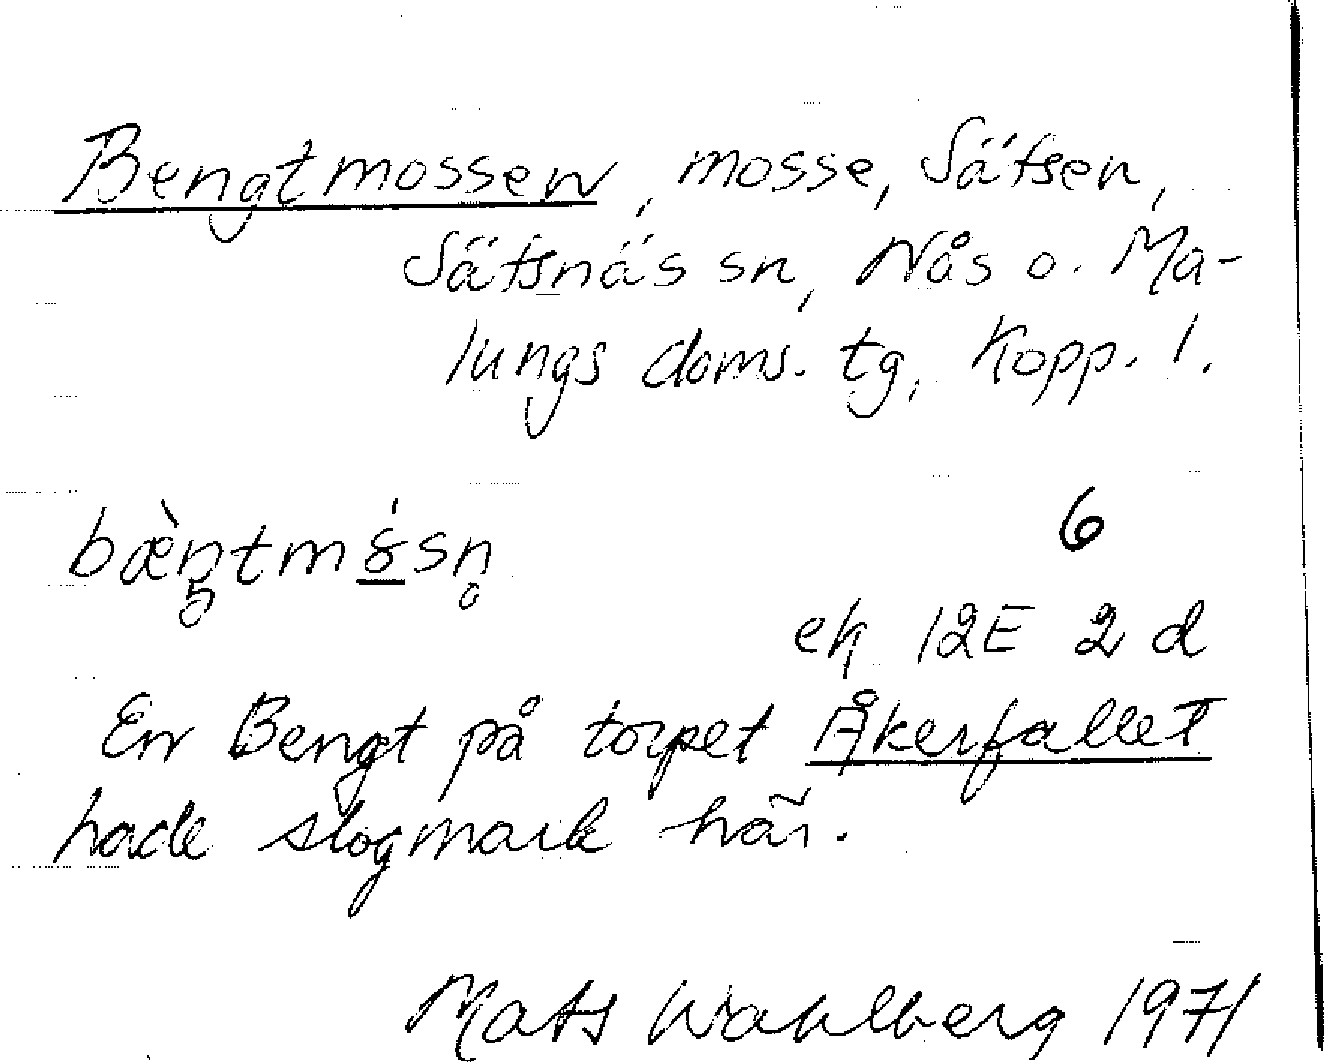 Bengtmossen, mosse, Sätsen,
Sätsnäs sn, Nås o. Ma-
lungs doms. tg, Kopp. l.
6
ek 12E 2 d
En Bengt på torpet Åkerfallet
hade slogmark här.
Mats Wahlberg 1971